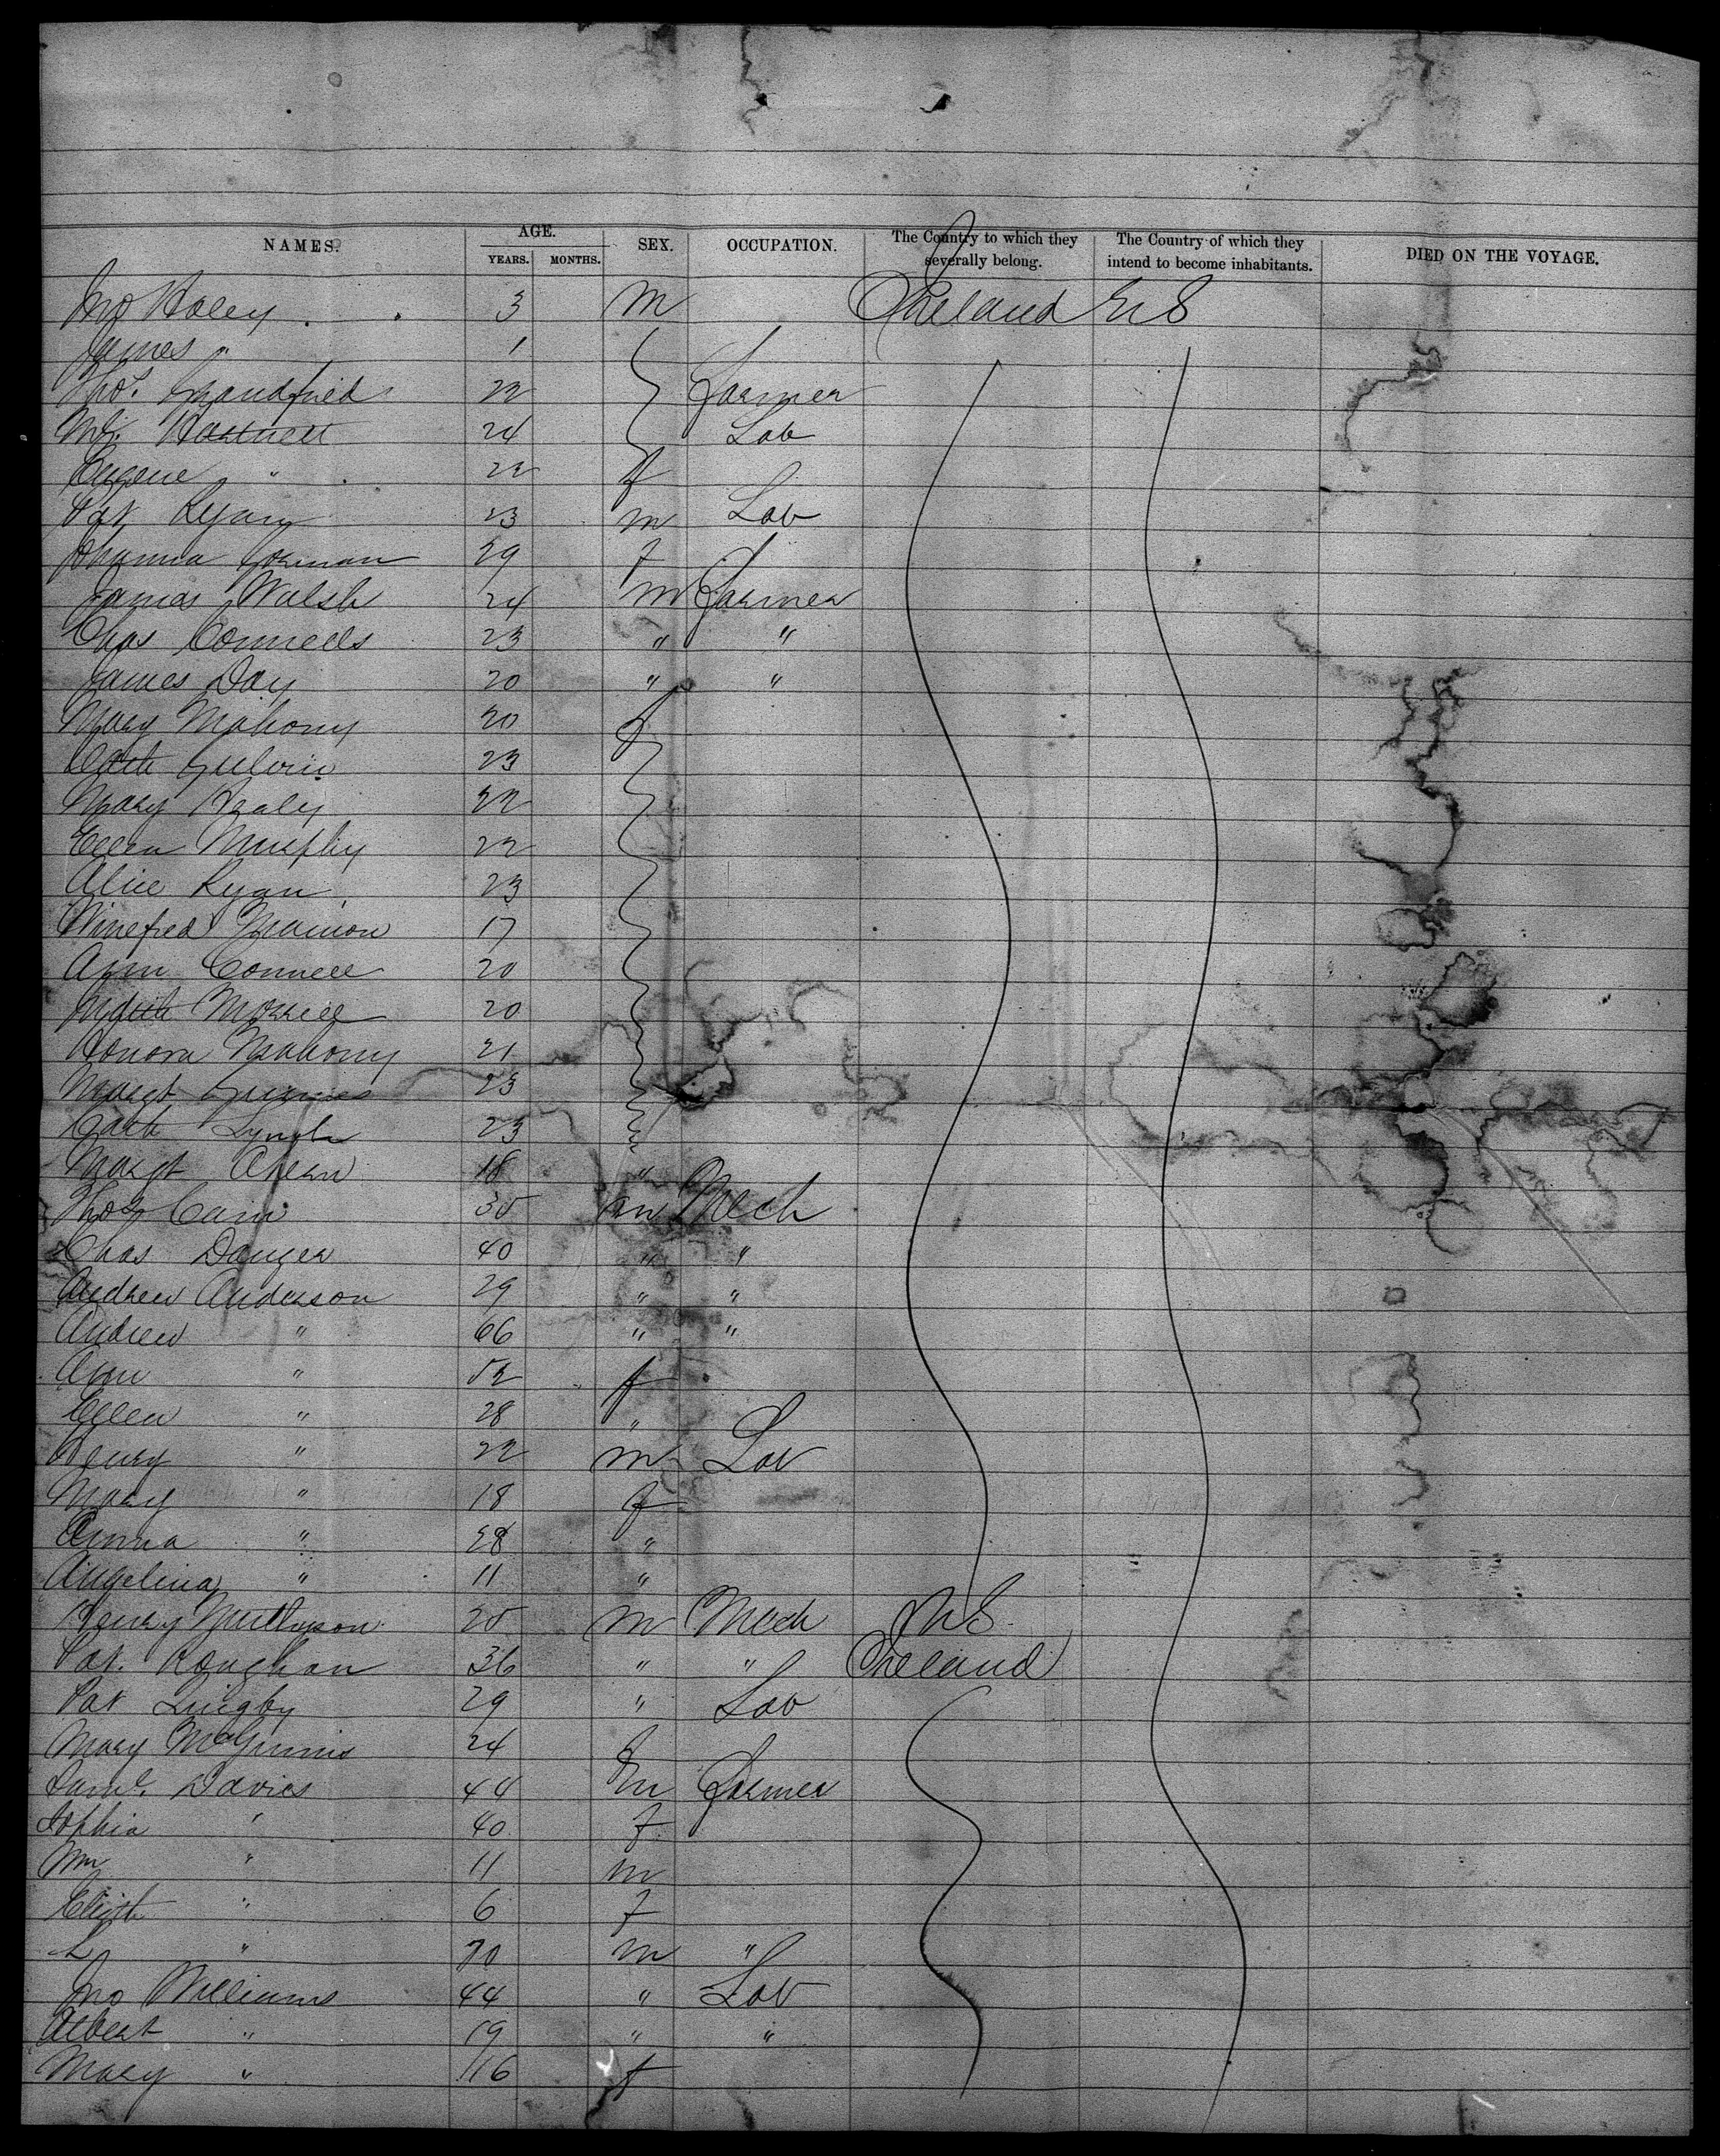 NAMES. AGE. SEX. OCCUPATION. The Country to which they severally belong. The Country of which they intend to become inhabitants. DIED ON THE VOYAGE.
YEARS. MONTHS.
Jno Haley 3 m Ireland U S
James " 1
Thos. 22 Farmer
Ml. Hartnett 24 Lab
" 22 f
Pat Ryan 23 m Lab
Johanna Gorman 29 f
James Walsh 24 m Farmer
Chas Connells 23 " "
James Day 20 " "
Mary Mahony 20 f
Cath 23
Mary Healy 22
Ellen Murphy 22
Alice Ryan 23
Winefred 17
Ann Connell 20
Judith 20
Honora Mahony 21
Margt 23
Cath Lynch 23
Margt Ahern 18 "
Thos Cain 35 m Mech
Chas 40 " "
Andrew Anderson 29 " "
Andrew " 66 " "
Ann " 52 f
Ellen " 28 "
Henry " 22 m Lab
Mary " 18 f
Anna " 28 "
Angelina " 11 "
Henry 25 m Mech U S
Pat. Roughan 36 " " Ireland
Pat 29 " Lab
Mary McGinnis 24 f
Saml. Davies 44 m Farmer
Sophia " 40 f
Wm " 11 m
Elizth " 6 f
" 70 m "
Jno Williams 44 " Lab
Albert " 19 " "
Mary " 16 f